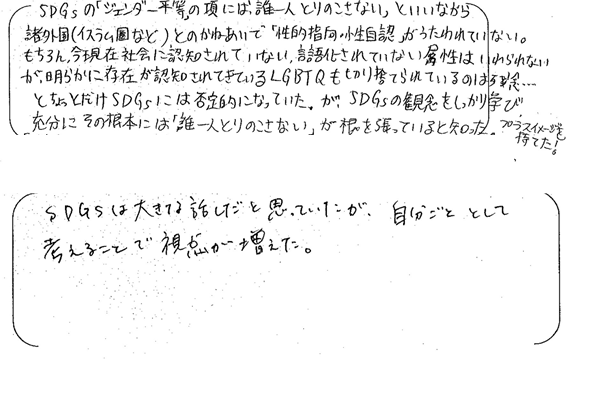 SDGsの「ジェンダー平等」の項には「誰一人とりのこさない」といいながら
諸外国(イスラム圏など)とのかねあいで「性的指向・小生自認」がうたわれていない。
もちろん、今現在社会に認知されていない、言語化されていない属性はいわれないが、
明らかに存在が認知されてきているLGBTQも切り捨てられているのは残念…
とちょっとだけSDGsには否定的になっていた。が、SDGsの観念をしっかり学び
充分にその根本には「誰一人とりのこさない」が根を張っていると知った。
プラスイメージを
持てた!
SDGsは大きな話しだと思っていたが、自分ごととして
考えることで視点が増えた。